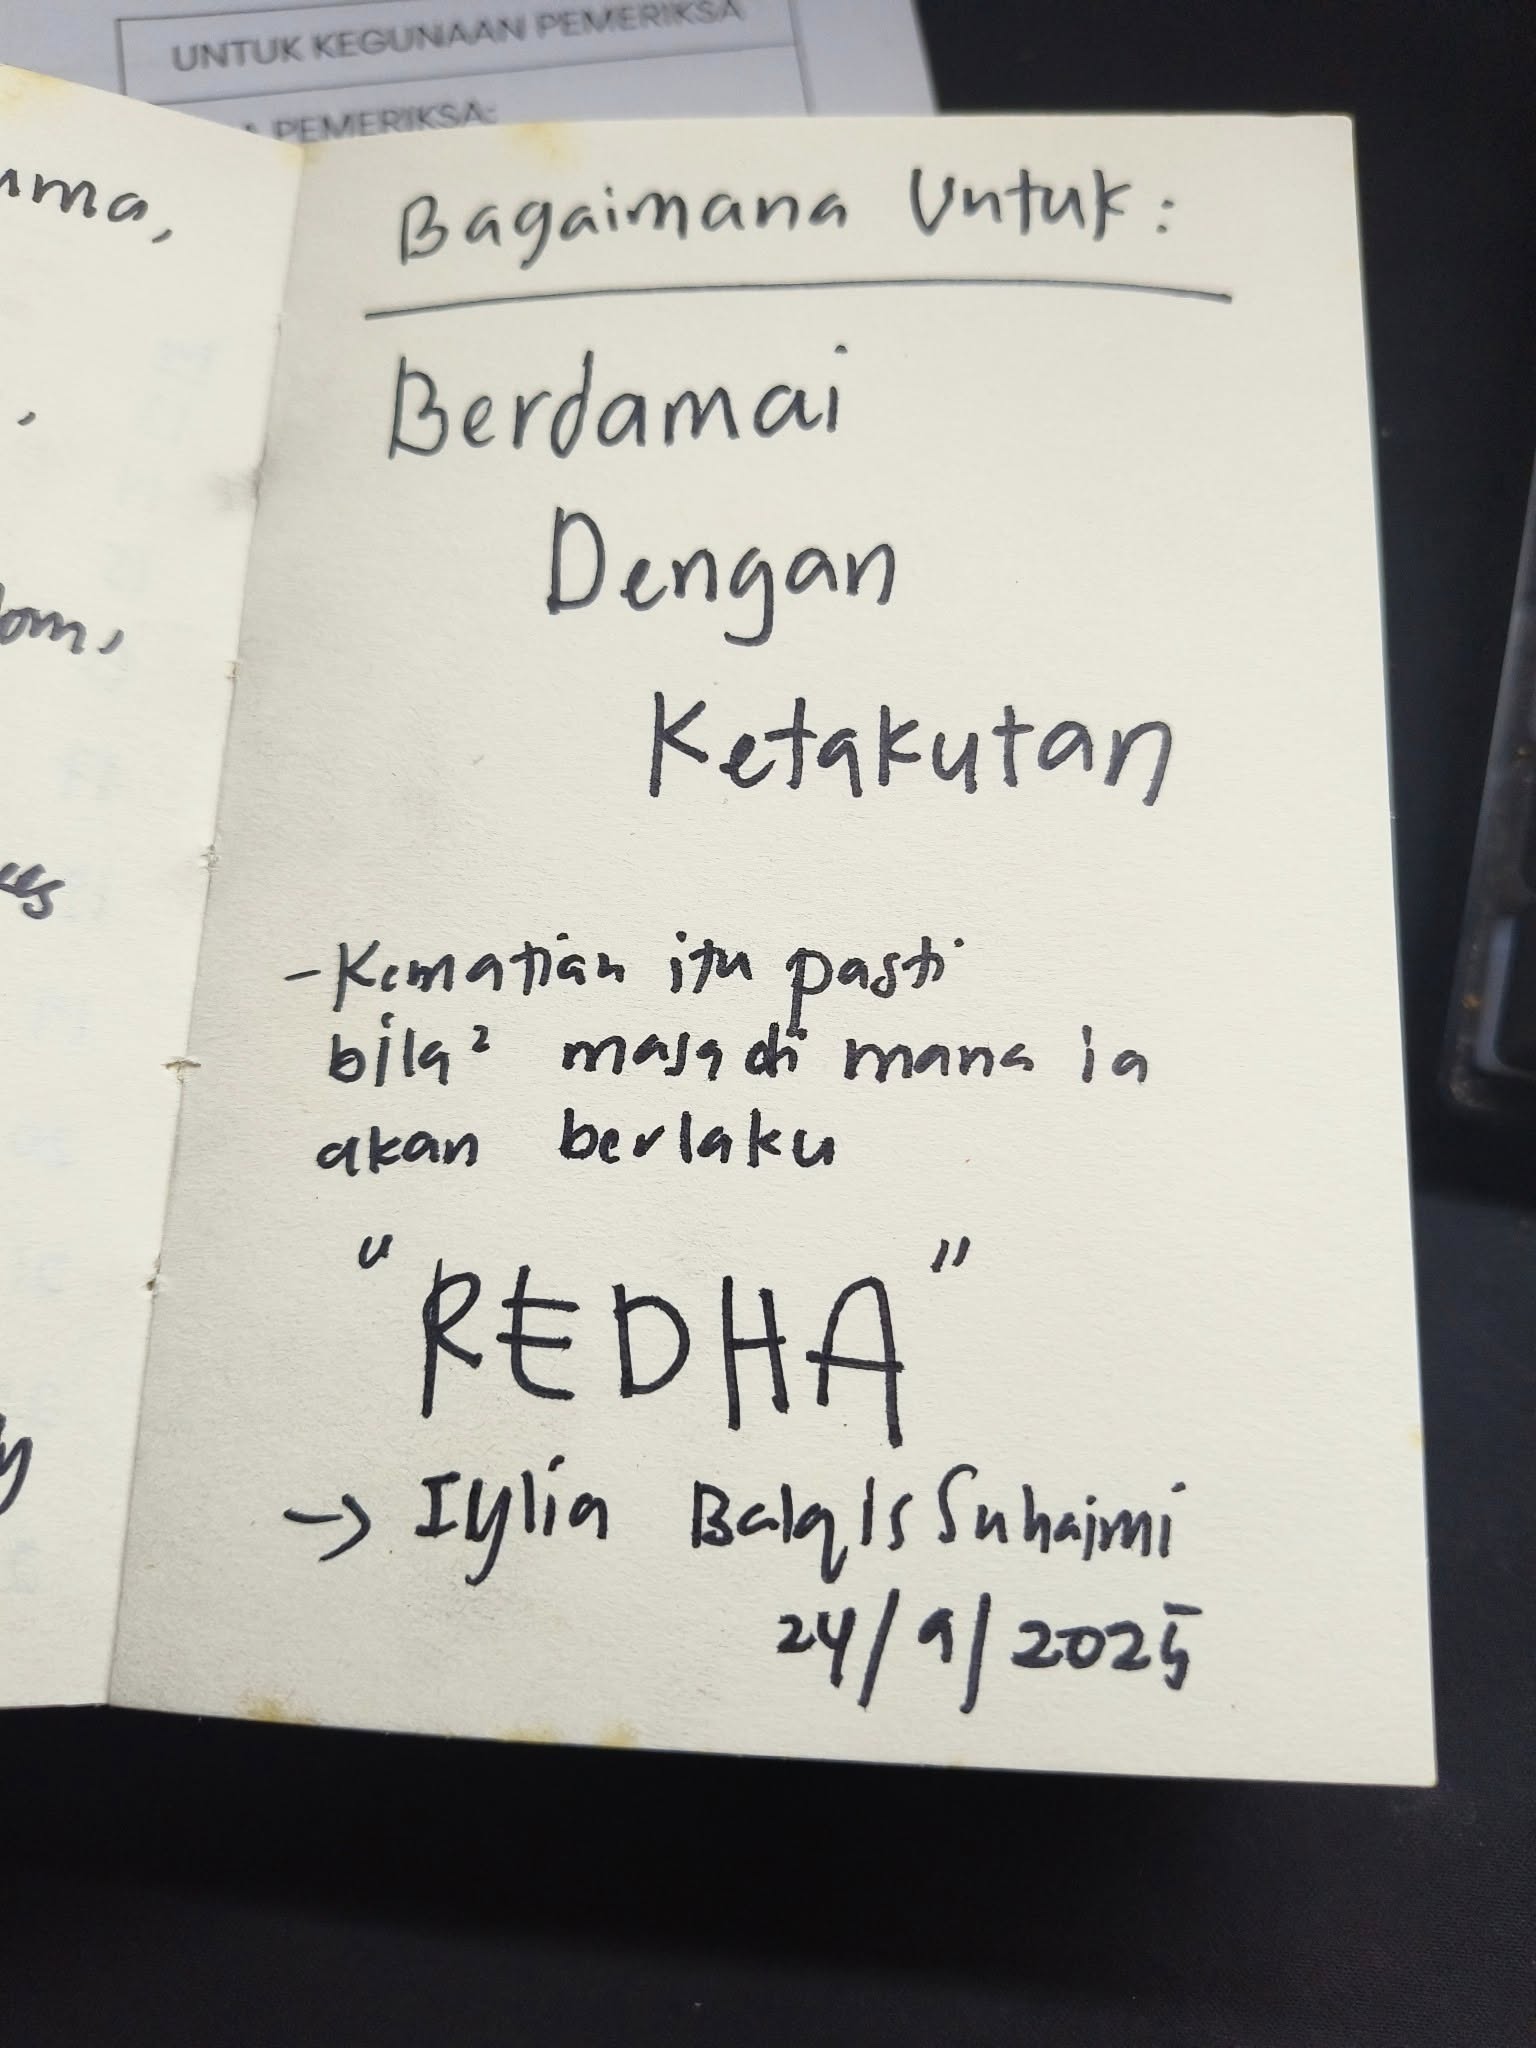 UNTUK KEGUNAAN PEMERIKSA
PEMERIKSA:
Bagaimana Untuk:
Berdamai
Dengan
Ketakutan
- Kematian itu pasti
bila² masa di mana ia
akan berlaku
"REDHA"
→ Iylia Balqis Suhaimi
24/9/2025